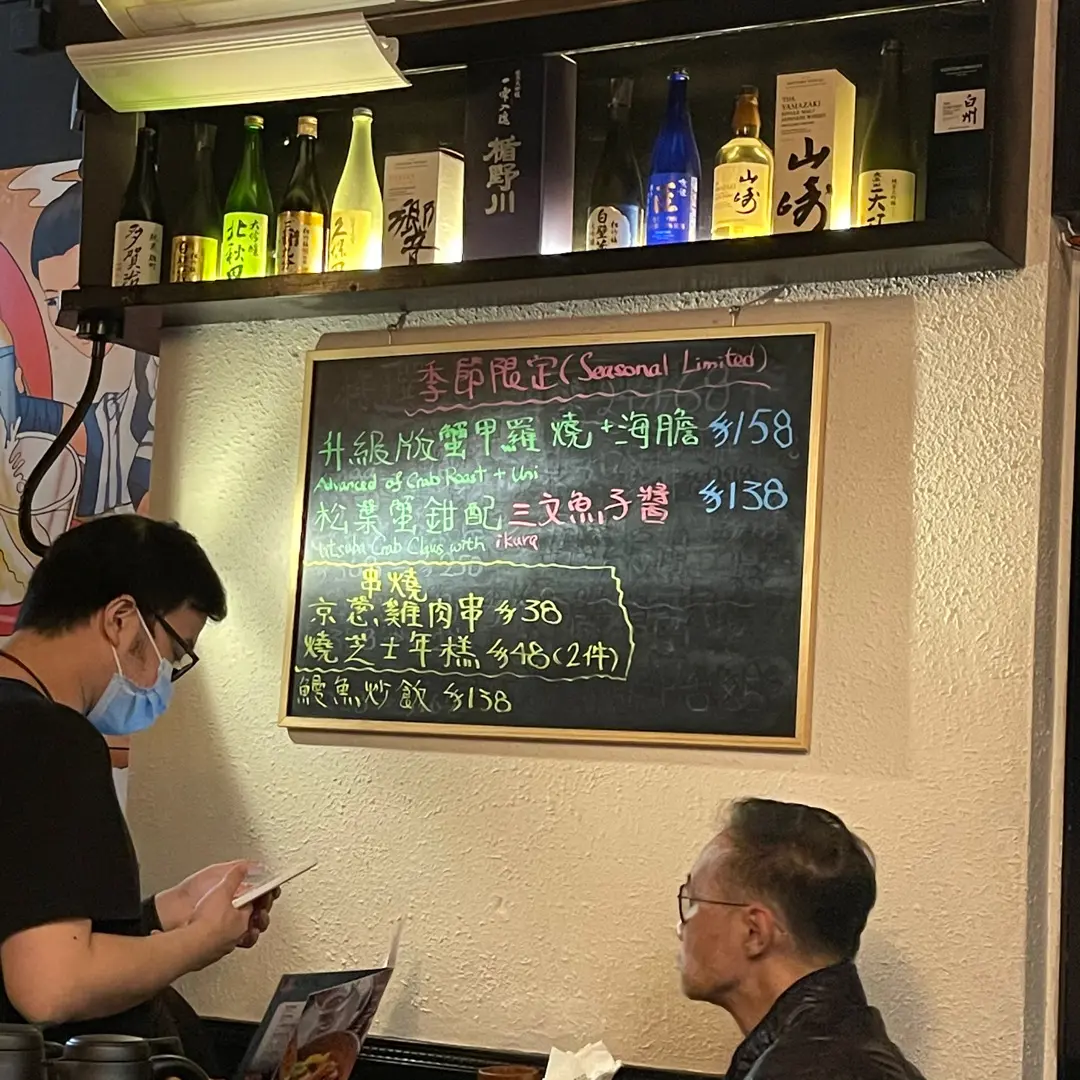 多賀治
北秋田
久保田
響
楯野川
THE YAMAZAKI
SINGLE MALT
山崎
山崎
白州
季節限定(Seasonal Limited)
升級版蟹甲羅燒+海膽 $158
Advanced of Crab Roast + Uni
松葉蟹鉗配三文魚子醬 $138
Matsuba Crab Claws with ikura
串燒
京葱雞肉串 $38
燒芝士年糕 $48(2件)
鰻魚炒飯 $138